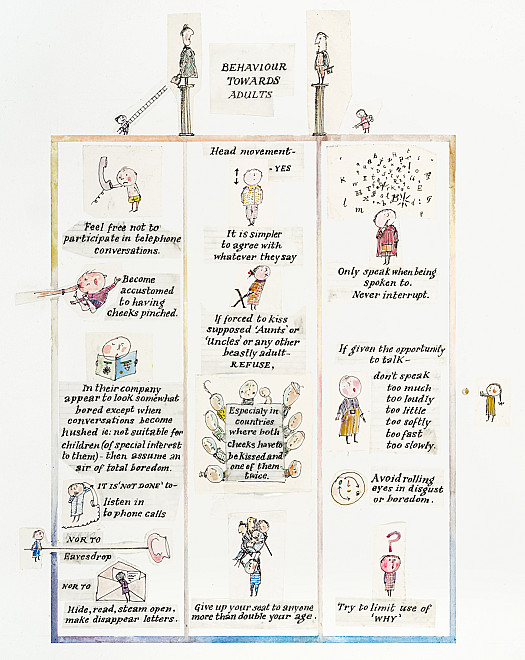 BEHAVIOUR
TOWARDS
ADULTS
Feel free not to
participate in telephone
conversations.
Become
accustomed
to having
cheeks pinched.
In their company
appear to look somewhat
bored except when
conversations become
hushed ie: not suitable for
children (of special interest
to them)- then assume an
air of total boredom.
IT IS 'NOT DONE' to-
listen in
to phone calls
NOR TO
Eavesdrop
NOR TO
Hide, read, steam open,
make disappear letters.
Head movement-
- YES
It is simpler
to agree with
whatever they say
If forced to kiss
supposed 'Aunts' or
'Uncles' or any other
beastly adult-
REFUSE,
Especialy in
countries
where both
cheeks have to
be kissed and
one of them
twice.
Give up your seat to anyone
more than double your age.
Only speak when being
spoken to.
Never interrupt.
If given the opportunity
to talk-
don't speak
too much
too loudly
too little
too softly
too fast
too slowly.
Avoid rolling
eyes in disgust
or boredom.
?
Try to limit use of
'WHY'